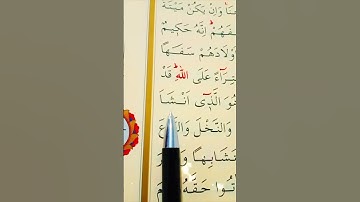 هَنَا وَاِنْ يَكُنْ مَيْتَةً
فَهُمْ اِنَّهُ حَكِيمٌ
اَوْلَادَهُمْ سَفَهًا
تِرَٓاءً عَلَى اللّٰهِ قَدْ
هُوَ الَّذ۪ٓي اَنْشَاَ
وَالنَّخْلَ وَال
تَشَابِهًا وَ
تُوا حَقَّهُ